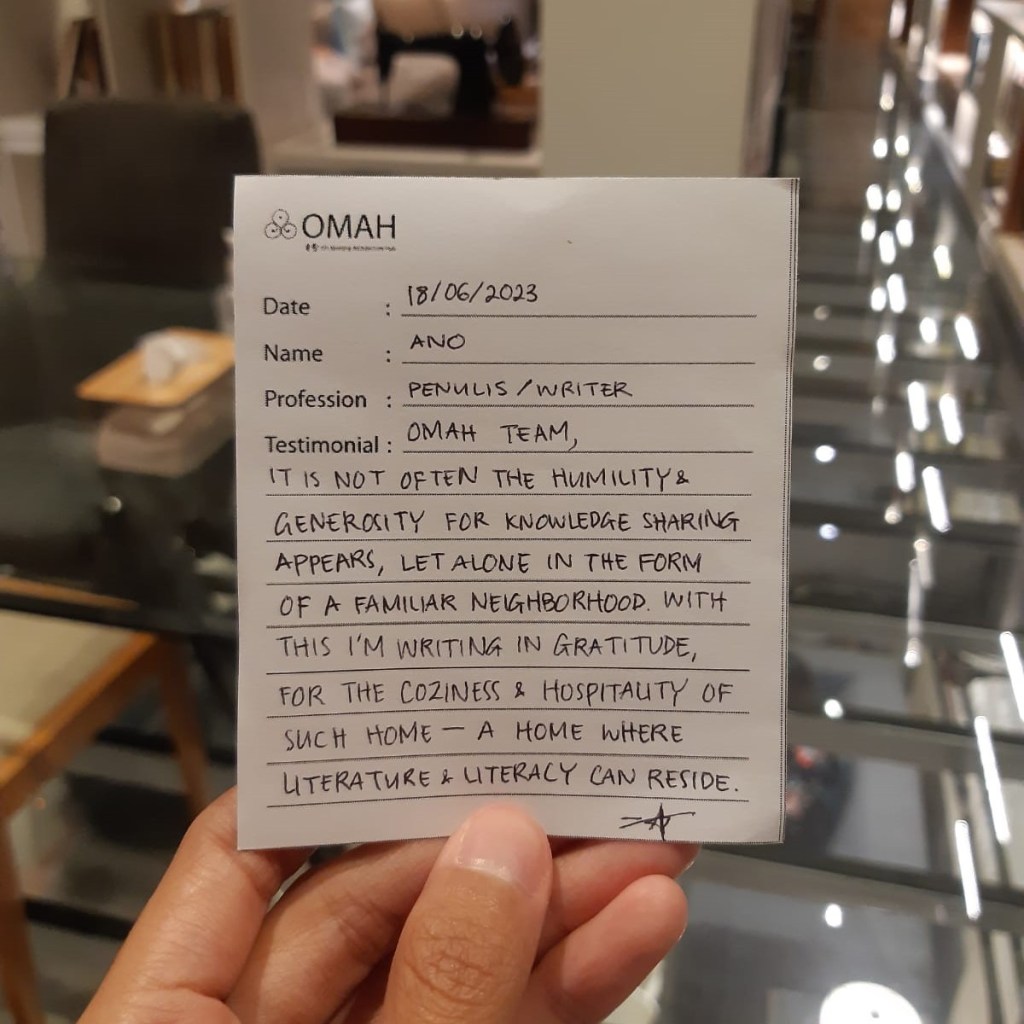 OMAH
Date : 18/06/2023
Name : ANO
Profession : PENULIS / WRITER
Testimonial : OMAH TEAM,
IT IS NOT OFTEN THE HUMILITY &
GENEROSITY FOR KNOWLEDGE SHARING
APPEARS, LET ALONE IN THE FORM
OF A FAMILIAR NEIGHBORHOOD. WITH
THIS I'M WRITING IN GRATITUDE,
FOR THE COZINESS & HOSPITALITY OF
SUCH HOME — A HOME WHERE
LITERATURE & LITERACY CAN RESIDE.